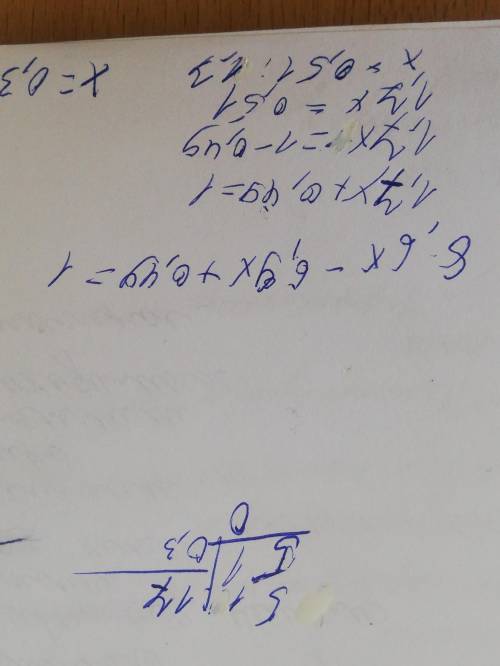 51 17
51 0,3
0
8,6x - 6,9x + 0,49 = 1
1,7x + 0,49 = 1
1,7x = 1 - 0,49
1,7x = 0,51
x = 0,51 : 1,7 x = 0,3